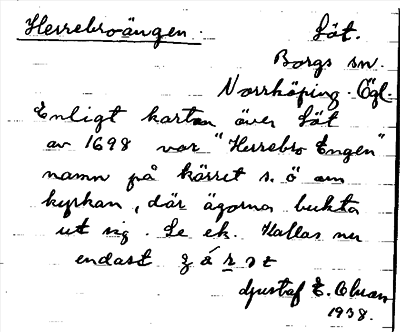 Herrebroängen. Löt.
Borgs sn.
Norrköping. Ögl.
Enligt kartan över Löt
av 1698 var "Herrebro Engen"
namn på kärret s. ö om
kyrkan, där ägorna bukta
ut sig. Se ek. Kallas nu
endast
Gustaf E. Olsson
1938.